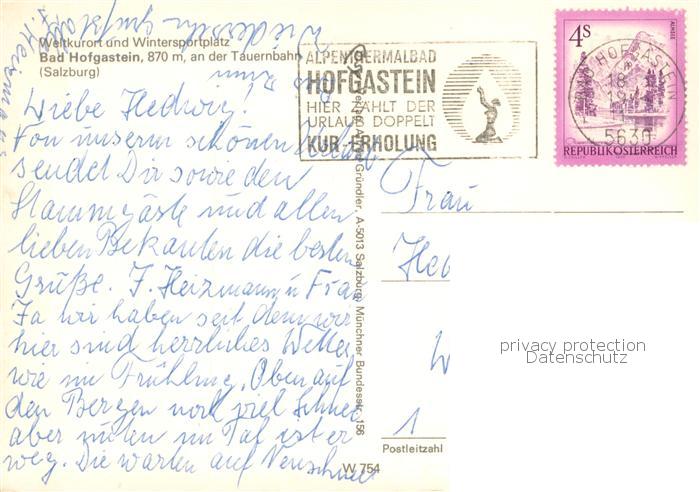 Weltkurort und Wintersportplatz
Bad Hofgastein, 870 m, an der Tauernbahn
(Salzburg)
Liebe Hedwig.
Von unserm schönen Urlaub
sendet Dir sowie den
Stammgäste und allen
lieben Bekanten die besten
Grüße. F. Heizmann u Frau
Ja wir haben seit dem wir
hier sind herrliches Wetter
wie im Frühling, Oben auf
den Bergen noch viel Schnee
aber unten im Tal ist er
weg. Die warten auf Neuschnee
Wiedersehn
ALPENTHERMALBAD
HOFGASTEIN
HIER ZÄHLT DER
URLAUB DOPPELT
KUR-ERHOLUNG
4S
ALMSEE
BAD HOFGASTEIN
5630
REPUBLIK ÖSTERREICH
Gründler, A-5013 Salzburg, Münchner Bundesstr. 156
Frau
1
Postleitzahl
W 754
privacy protection
Datenschutz